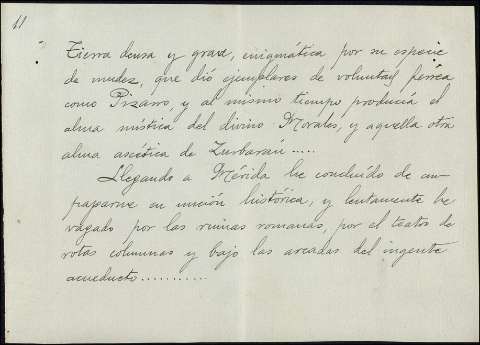 11
Tierra densa y grave, enigmática por su especie
de mudez, que dió ejemplares de voluntad férrea
como Pizarro, y al mismo tiempo producía el
alma mística del divino Morales, y aquella otra
alma ascética de Zurbarán.....
Llegando a Mérida he concluído de em-
paparme en unción histórica, y lentamente he
vagado por las ruinas romanas, por el teatro de
rotas columnas y bajo las arcadas del ingente
acueducto...........